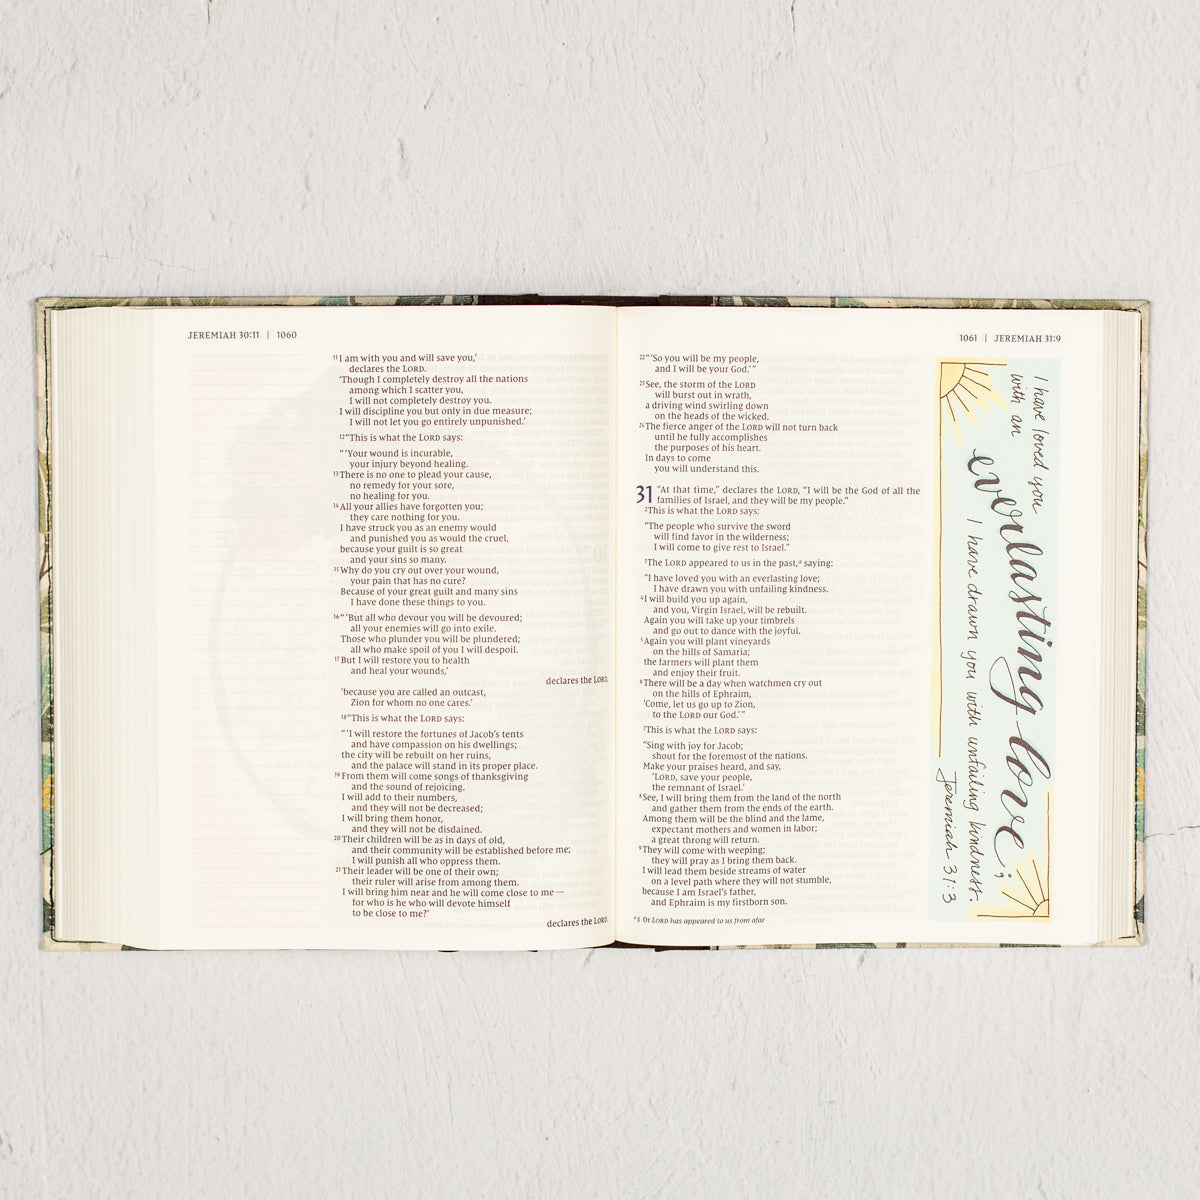 JEREMIAH 30:11 | 1060
¹¹I am with you and will save you,’
declares the LORD.
‘Though I completely destroy all the nations
among which I scatter you,
I will not completely destroy you.
I will discipline you but only in due measure;
I will not let you go entirely unpunished.’
¹²“This is what the LORD says:
“ ‘Your wound is incurable,
your injury beyond healing.
¹³There is no one to plead your cause,
no remedy for your sore,
no healing for you.
¹⁴All your allies have forgotten you;
they care nothing for you.
I have struck you as an enemy would
and punished you as would the cruel,
because your guilt is so great
and your sins so many.
¹⁵Why do you cry out over your wound,
your pain that has no cure?
Because of your great guilt and many sins
I have done these things to you.
¹⁶“ ‘But all who devour you will be devoured;
all your enemies will go into exile.
Those who plunder you will be plundered;
all who make spoil of you I will despoil.
¹⁷But I will restore you to health
and heal your wounds,’
declares the LORD,
‘because you are called an outcast,
Zion for whom no one cares.’
¹⁸“This is what the LORD says:
“ ‘I will restore the fortunes of Jacob’s tents
and have compassion on his dwellings;
the city will be rebuilt on her ruins,
and the palace will stand in its proper place.
¹⁹From them will come songs of thanksgiving
and the sound of rejoicing.
I will add to their numbers,
and they will not be decreased;
I will bring them honor,
and they will not be disdained.
²⁰Their children will be as in days of old,
and their community will be established before me;
I will punish all who oppress them.
²¹Their leader will be one of their own;
their ruler will arise from among them.
I will bring him near and he will come close to me —
for who is he who will devote himself
to be close to me?’
declares the LORD.
1061 | JEREMIAH 31:9
²²“ ‘So you will be my people,
and I will be your God.’ ”
²³See, the storm of the LORD
will burst out in wrath,
a driving wind swirling down
on the heads of the wicked.
²⁴The fierce anger of the LORD will not turn back
until he fully accomplishes
the purposes of his heart.
In days to come
you will understand this.
31 “At that time,” declares the LORD, “I will be the God of all the
families of Israel, and they will be my people.”
²This is what the LORD says:
“The people who survive the sword
will find favor in the wilderness;
I will come to give rest to Israel.”
³The LORD appeared to us in the past,ᵃ saying:
“I have loved you with an everlasting love;
I have drawn you with unfailing kindness.
⁴I will build you up again,
and you, Virgin Israel, will be rebuilt.
Again you will take up your timbrels
and go out to dance with the joyful.
⁵Again you will plant vineyards
on the hills of Samaria;
the farmers will plant them
and enjoy their fruit.
⁶There will be a day when watchmen cry out
on the hills of Ephraim,
‘Come, let us go up to Zion,
to the LORD our God.’ ”
⁷This is what the LORD says:
“Sing with joy for Jacob;
shout for the foremost of the nations.
Make your praises heard, and say,
‘LORD, save your people,
the remnant of Israel.’
⁸See, I will bring them from the land of the north
and gather them from the ends of the earth.
Among them will be the blind and the lame,
expectant mothers and women in labor;
a great throng will return.
⁹They will come with weeping;
they will pray as I bring them back.
I will lead them beside streams of water
on a level path where they will not stumble,
because I am Israel’s father,
and Ephraim is my firstborn son.
ᵃ3 Or LORD has appeared to us from afar
I have loved you
with an
everlasting love;
I have drawn you with unfailing kindness.
Jeremiah 31:3